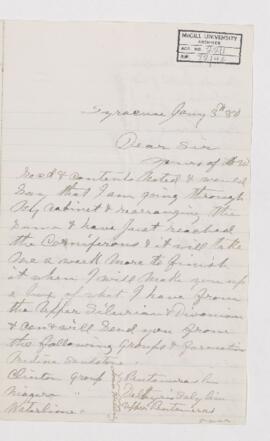 McGILL UNIVERSITY
ARCHIVES
ACC. NO.
REF.
Syracuse Jany 3rd 80
Dear Sir
Yours of
Recd & contents noted & would
Say that I am going through
My Cabinet & rearranging the
Same & have just reached
the Corniferous & it will take
me a week more to finish
it when I will make you up
a box of what I have from
the Upper Silurian & Devonian
& can & will Send you from
the following Groups & formation
Medina Sandstone
Clinton Group
Niagara "
Waterlime "
Pentamerus
Upper Pentamerus
over